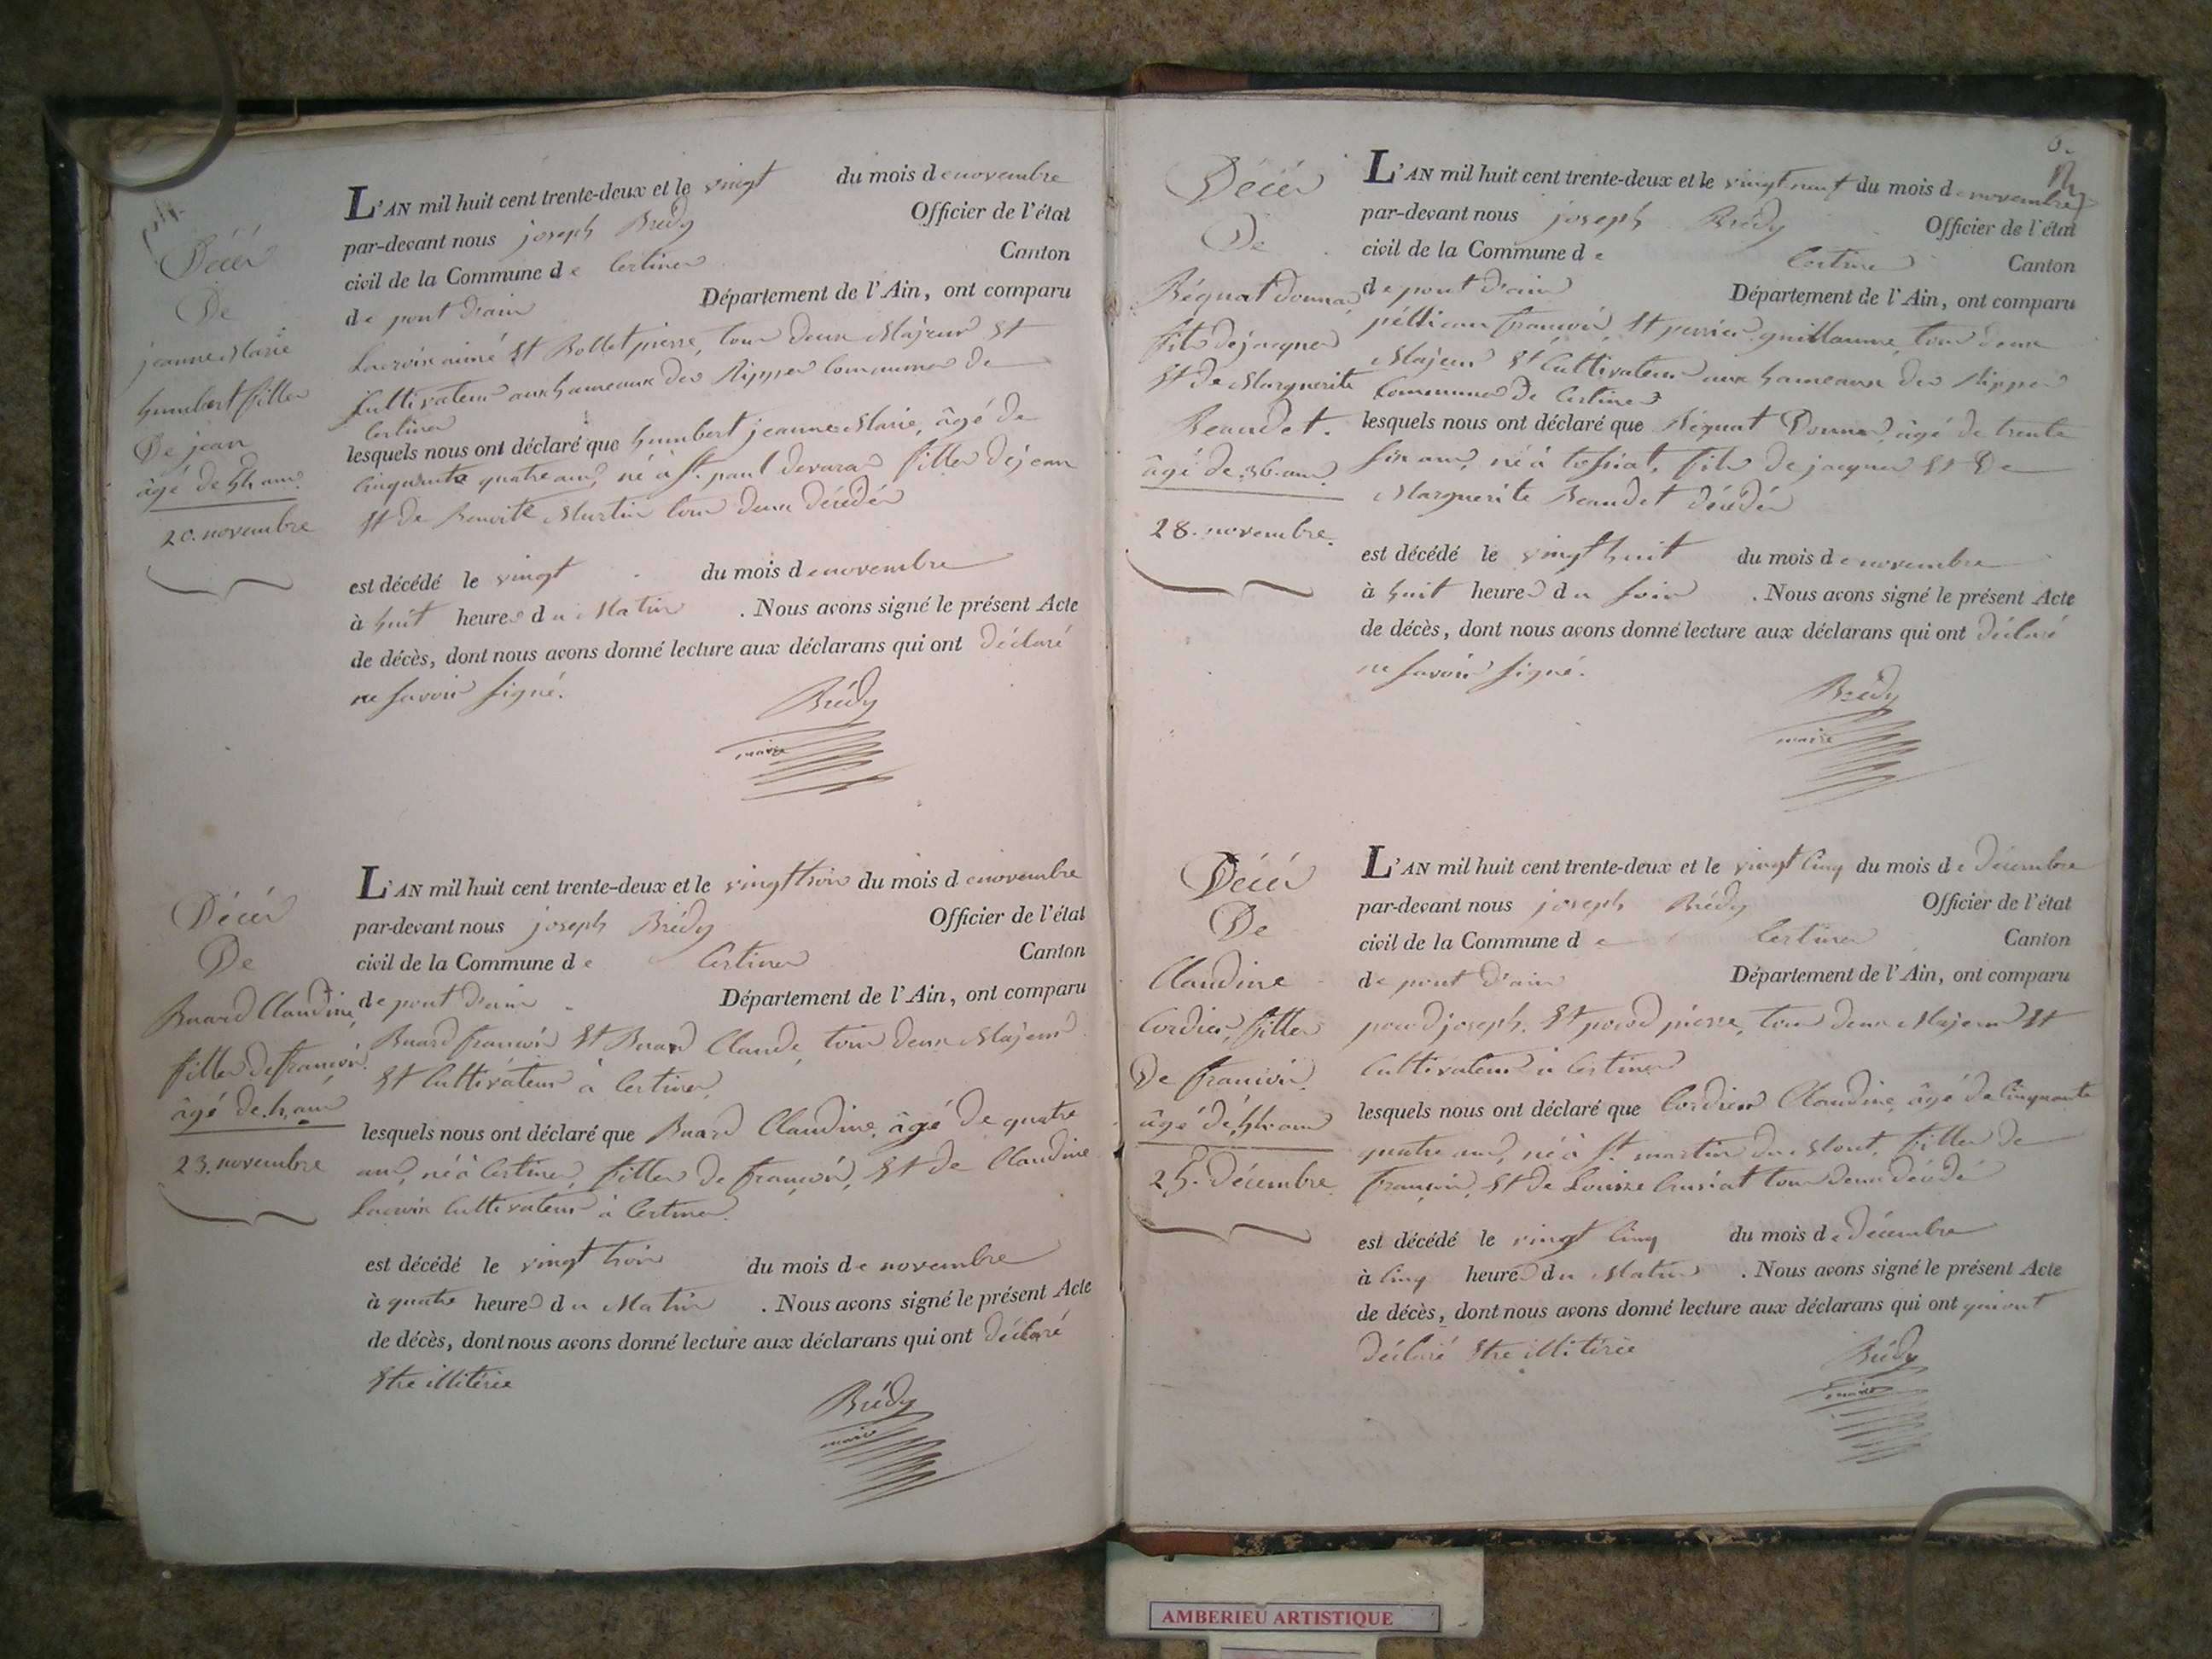 Décés
De
jeanne Marie
humbert fille
De jean
âgé de 54 ans.
20. novembre
L'AN mil huit cent trente-deux et le vingt du mois de novembre
par-devant nous joseph Brédy Officier de l'état
civil de la Commune de Certines Canton
de pont d'ain Département de l'Ain, ont comparu
Lacroix aimé Et Bollet pierre, tous deux Majeurs Et
Cultivateurs aux hameaux des Rippes Communes de
Certines
lesquels nous ont déclaré que humbert jeanne Marie, âgé de
Cinquante quatre ans, né à St. paul devarax fille dejean
Et de Benoite Martin tous deux décédés
est décédé le vingt du mois de novembre
à huit heures du Matin . Nous avons signé le présent Acte
de décès, dont nous avons donné lecture aux déclarans qui ont déclaré
ne savoir signé.
Brédy
maire
Décés
De
Buard Claudine,
fille De françois.
âgé de 4 ans
23. novembre
L'AN mil huit cent trente-deux et le vingt trois du mois de novembre
par-devant nous joseph Brédy Officier de l'état
civil de la Commune de Certines Canton
de pont d'ain Département de l'Ain, ont comparu
Buard françois Et Buard Claude, tous deux Majeurs
Et Cultivateurs à Certines.
lesquels nous ont déclaré que Buard Claudine, âgé De quatre
ans, né à Certines, fille De françois, Et de Claudine
Lacroix Cultivateurs à Certines.
est décédé le vingt trois du mois de novembre
à quatre heures du Matin . Nous avons signé le présent Acte
de décès, dont nous avons donné lecture aux déclarans qui ont déclaré
Etre illitérée
Brédy
maire
Décés
De
Réquat donnas,
fils dejacques
Et de Marguerite
Beaudet.
âgé de 36 ans
28. novembre.
L'AN mil huit cent trente-deux et le vingt neuf du mois de novembre
par-devant nous joseph Brédy Officier de l'état
civil de la Commune de Certines Canton
de pont d'ain Département de l'Ain, ont comparu
françois, Et perrier guillaume, tous deux
Majeurs Et Cultivateurs aux hameaux des Rippes
Communes de Certines
lesquels nous ont déclaré que Réquat Donnas, âgé de trente
six ans, né à tossiat, fils de jacques Et De
Marguerite Beaudet décédés
est décédé le vingt huit du mois de novembre
à huit heures du soir . Nous avons signé le présent Acte
de décès, dont nous avons donné lecture aux déclarans qui ont déclaré
ne savoir signé.
Brédy
maire
Décés
De
Claudine
Cordier, fille
De françois.
âgé de 54 ans
25. décembre
L'AN mil huit cent trente-deux et le vingt Cinq du mois de décembre
par-devant nous joseph Brédy Officier de l'état
civil de la Commune de Certines Canton
de pont d'ain Département de l'Ain, ont comparu
joseph, Et pierre, tous deux Majeurs Et
Cultivateurs à Certines
lesquels nous ont déclaré que Cordier Claudine, âgé de Cinquante
quatre ans, né à St. martin du Mont, fille de
françois, Et de Louise Cruiat tous deux décédé
est décédé le vingt Cinq du mois de décembre
à Cinq heures du Matin . Nous avons signé le présent Acte
de décès, dont nous avons donné lecture aux déclarans qui ont qui ont
déclaré Etre illitérée
Brédy
maire
AMBERIEU ARTISTIQUE